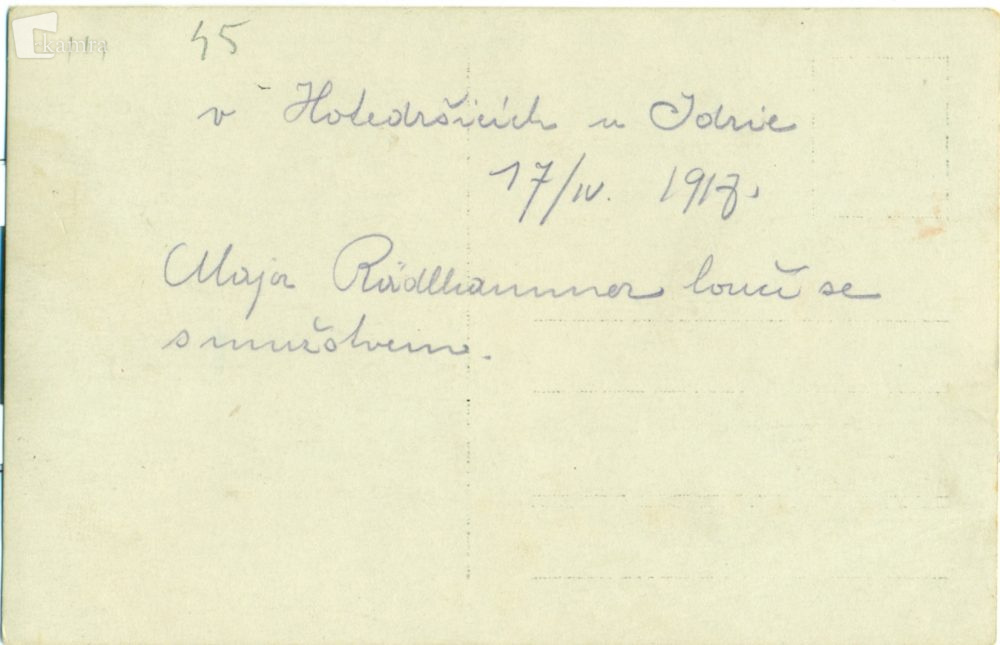 kamra
45
v Hotedršicích u Idrie
17/IV. 1917.
Major Rädlhammer loučí se
s mužstvem.